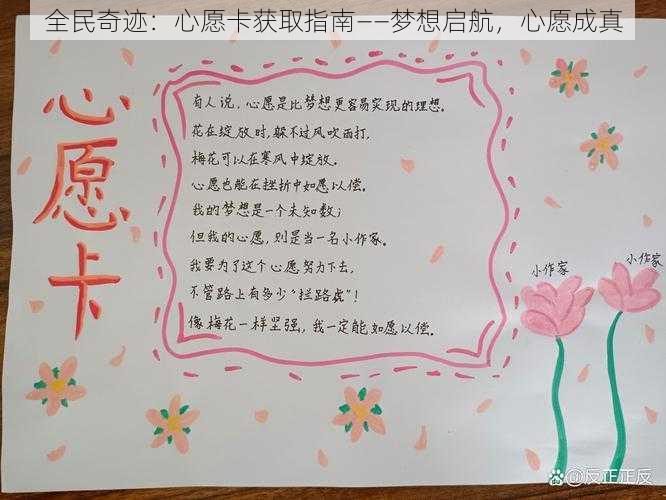 全民奇迹：心愿卡获取指南——梦想启航，心愿成真
心愿卡
有人说，心愿是比梦想更容易实现的理想。
花在绽放时，躲不过风吹雨打，
梅花可以在寒风中绽放。
心愿也能在挫折中如愿以偿。
我的梦想是一个未知数；
但我的心愿，则是当一名小作家。
我要为了这个心愿努力下去，
不管路上有多少“拦路虎”！
像梅花一样坚强，我一定能如愿以偿。
小作家
小作家
Bai百科@反正正反